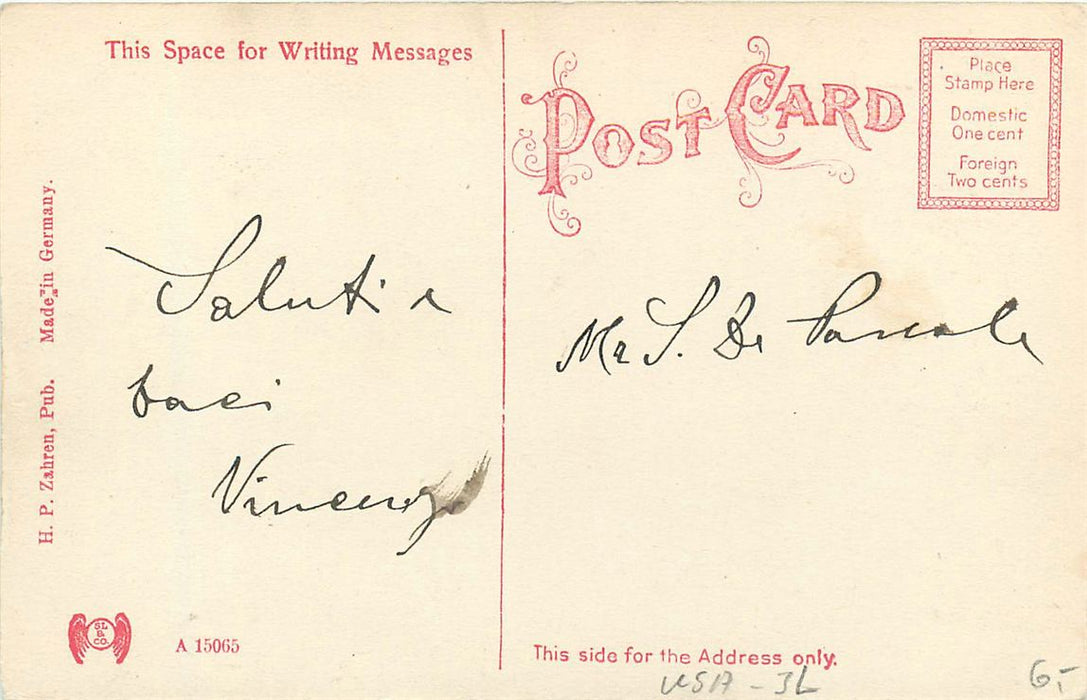 This Space for Writing Messages
POST CARD
Place
Stamp Here
Domestic
One cent
Foreign
Two cents
H. P. Zahren, Pub. Made in Germany.
Saluti e
baci
Vincenzo
Mr S. De Pascale
SL
&
CO.
A 15065
This side for the Address only.
USA - 3L
6,-